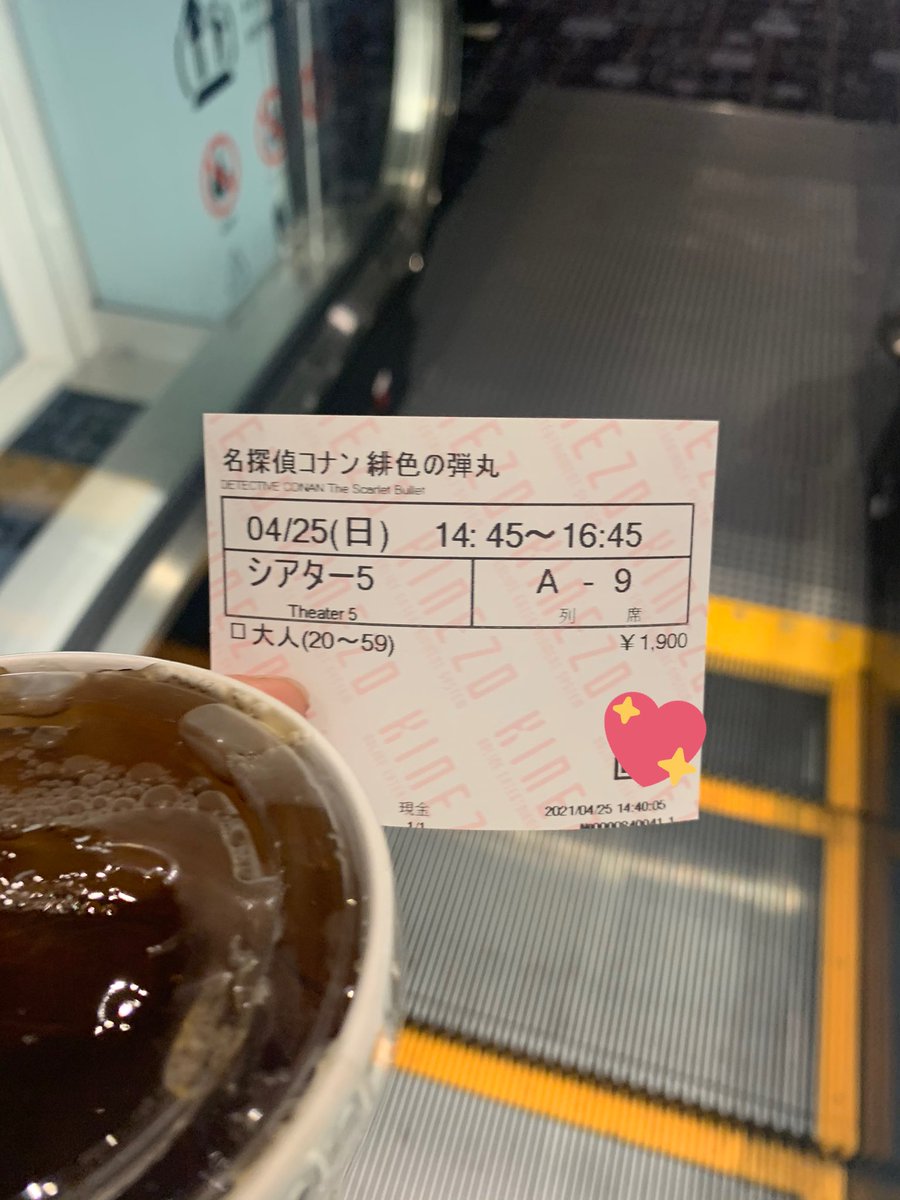 名探偵コナン 緋色の弾丸
DETECTIVE CONAN The Scarlet Bullet
04/25(日) 14:45～16:45
シアター5
A - 9
Theater 5
列 席
大人(20～59) ¥1,900
KINEZO
現金
2021/04/25 14:40:05
1/1